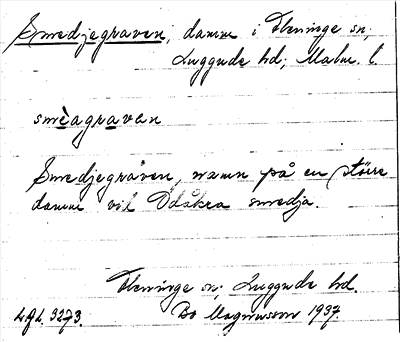 Smedjegraven, damm i Fleninge sn,
Luggude hd; Malm. l.
smèagravan
Smedjegraven, namn på en större
damm vid Ödåkra smedja.
Fleninge sn; Luggude hd.
L.G.L. 3273. Bo Magnusson 1937.